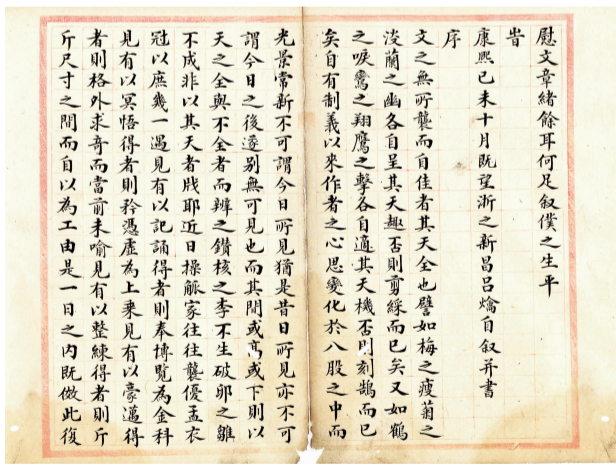 慰文章緒餘耳何足叙僕之生平
旹
康熙己未十月既望浙之新昌呂爚自叙并書
序
文之無所襲而自佳者其天全也譬如梅之瘦菊之
淡蘭之幽各自呈其天趣否則剪綵而已矣又如鶴
之唳鸞之翔鷹之擊各自適其天機否則刻鵠而已
矣自有制義以來作者之心思變化於八股之中而
光景常新不可謂今日所見猶是昔日所見亦不可
謂今日之後遂別無可見也而其間或高或下則以
天之全與不全者而辨之鑽核之李不生破卵之雛
不成非以其天者戕耶近日操觚家往往襲優孟衣
冠以庶幾一遇見有以記誦得者則奉博覽為金科
見有以冥悟得者則矜憑虛為上乗見有以豪邁得
者則格外求奇而當前未喻見有以整練得者則斤
斤尺寸之間而自以為工由是一日之內既倣此復